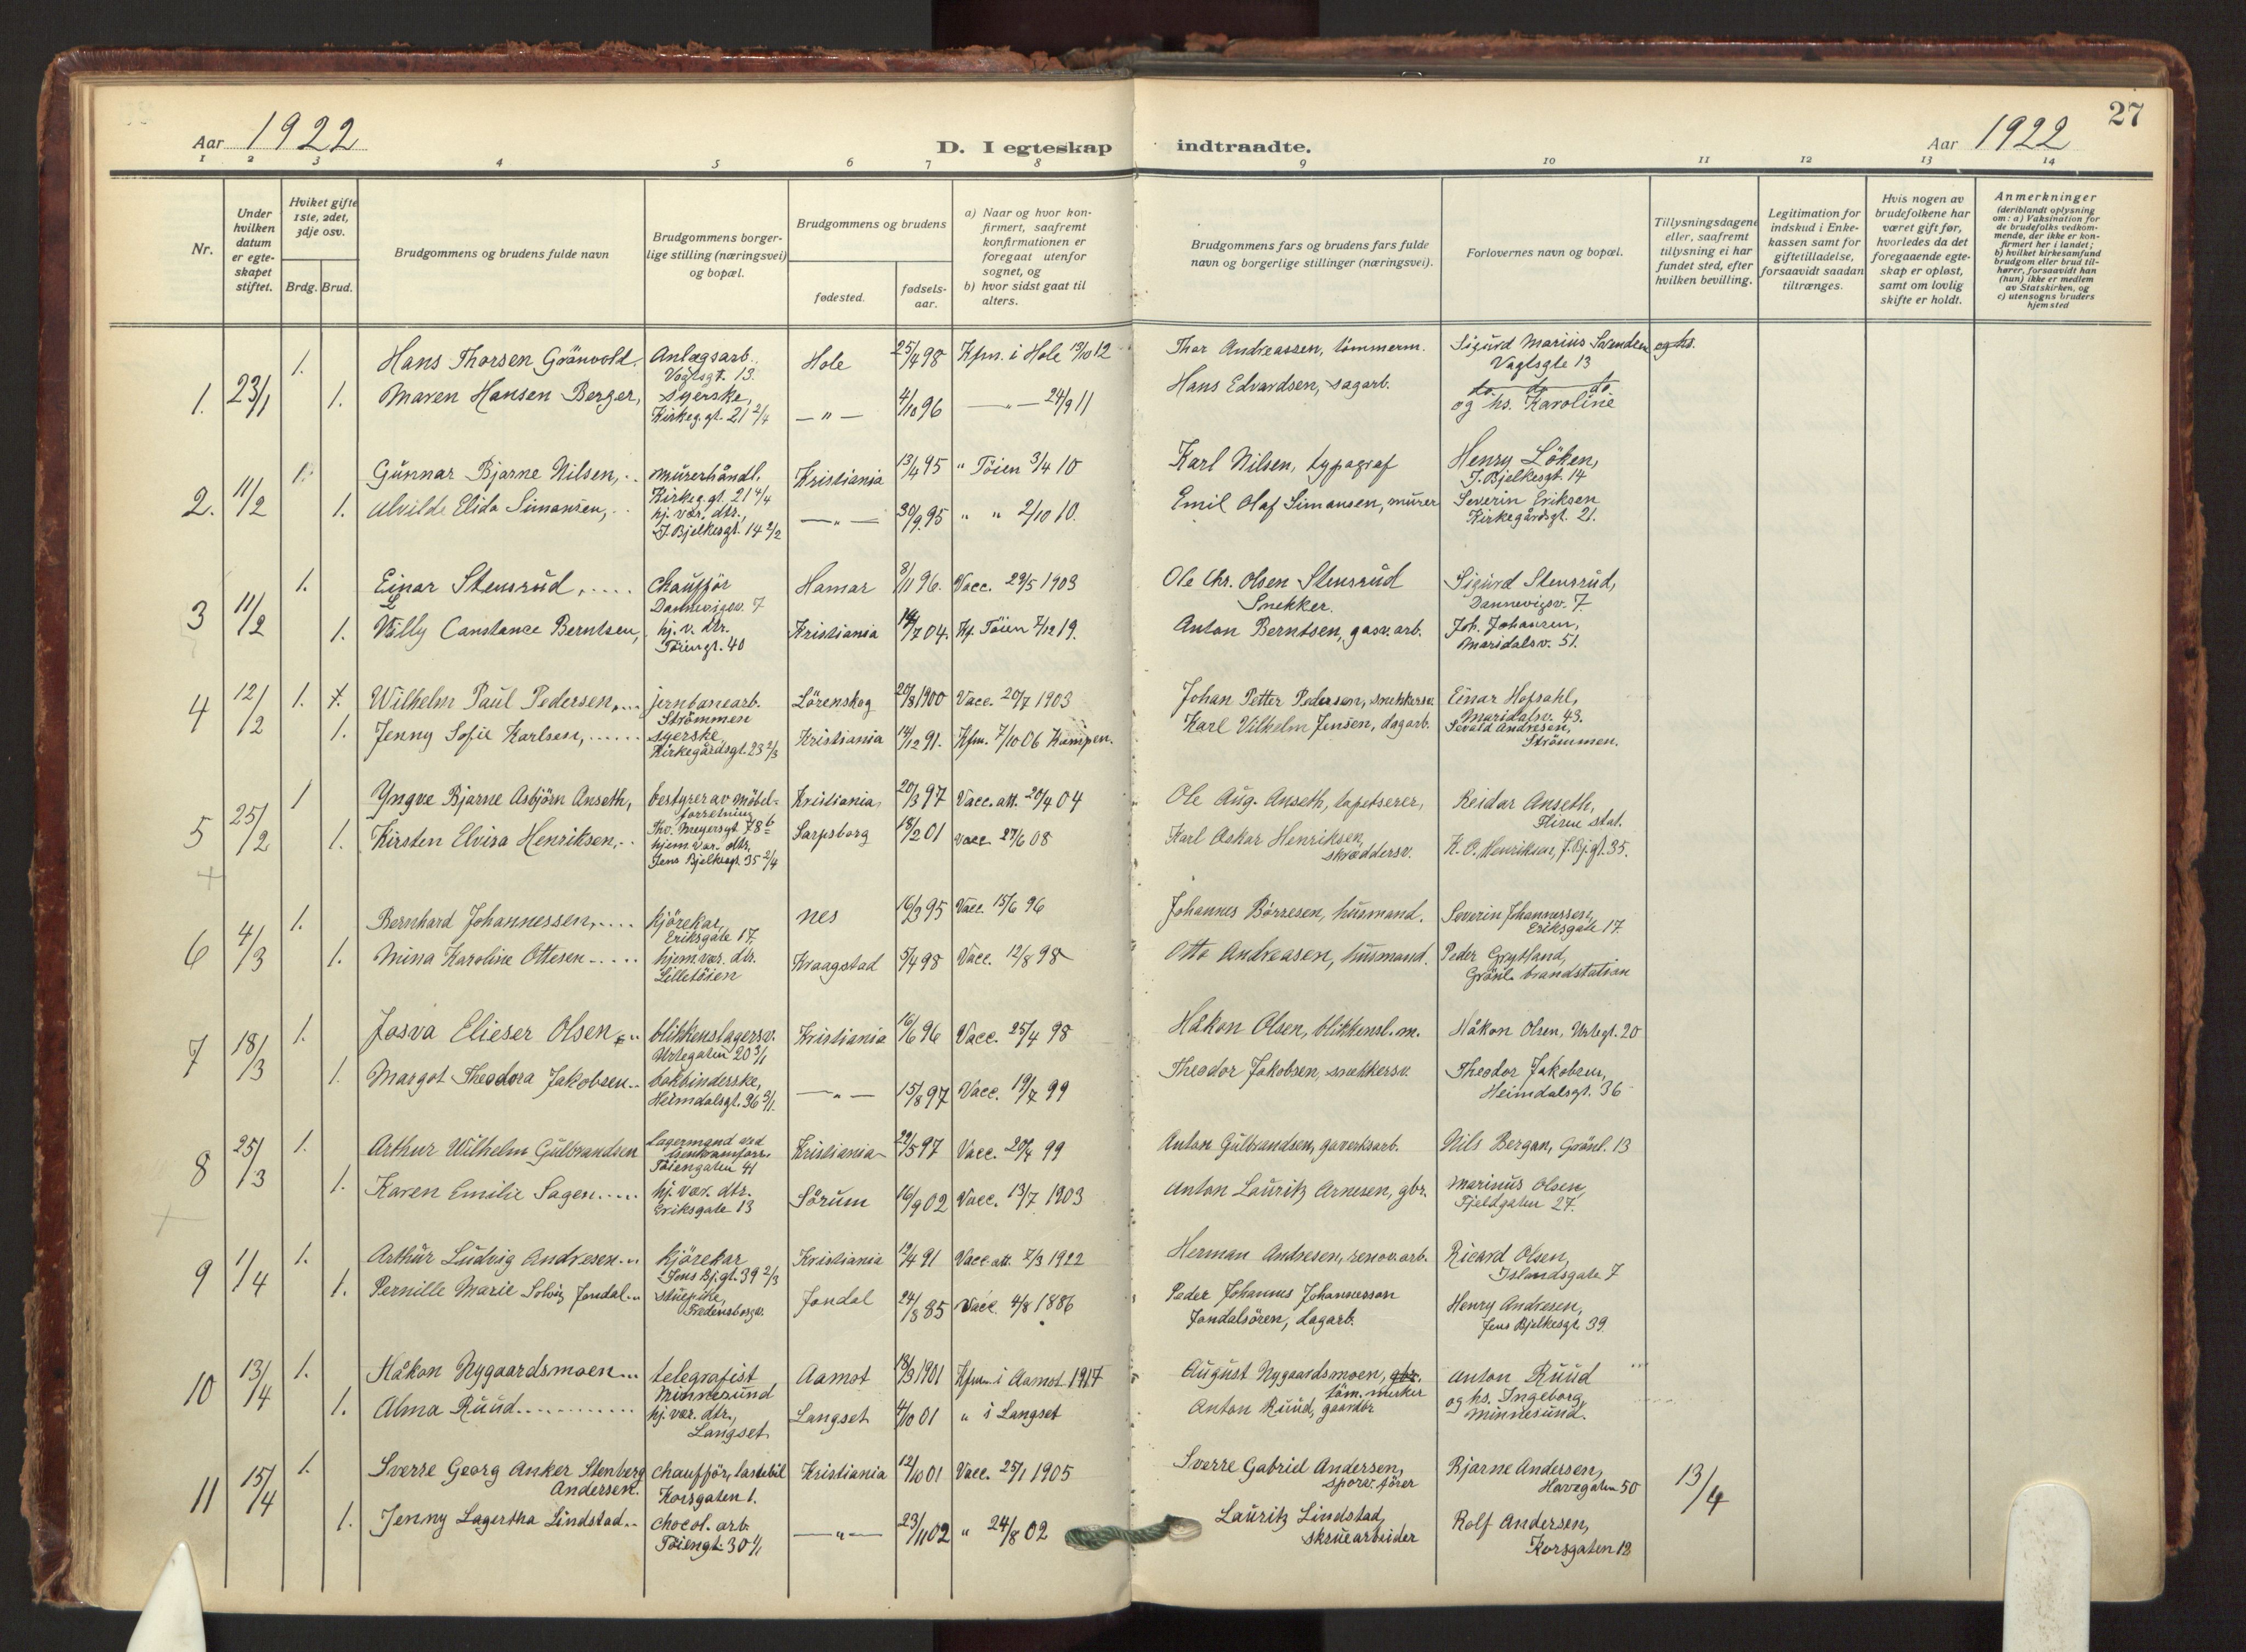 27
Aar 1922
D. I egteskap indtraadte.
Aar 1922
1 2 3 4 5 6 7 8 9 10 11 12 13 14
Nr.
Under hvilken datum er egteskapet stiftet.
Hviket gifte 1ste, 2det, 3dje osv.
Brdg. Brud.
Brudgommens og brudens fulde navn
Brudgommens borgerlige stilling (næringsvei) og bopæl.
Brudgommens og brudens
fødested.
fødselsaar.
a) Naar og hvor konfirmert, saafremt konfirmationen er foregaat utenfor sognet, og
b) hvor sidst gaat til alters.
Brudgommens fars og brudens fars fulde navn og borgerlige stillinger (næringsvei).
Forlovernes navn og bopæl.
Tillysningsdagene eller, saafremt tillysning ei har fundet sted, efter hvilken bevilling.
Legitimation for indskud i Enkekassen samt for giftetilladelse, forsaavidt saadan tiltrænges.
Hvis nogen av brudefolkene har været gift før, hvorledes da det foregaaende egteskap er opløst, samt om lovlig skifte er holdt.
Anmerkninger
(deriblandt oplysning om: a) Vaksination for de brudefolks vedkommende, der ikke er konfirmert her i landet;
b) hvilket kirkesamfund brudgom eller brud tilhører, forsaavidt han (hun) ikke er medlem av Statskirken, og
c) utensogns bruders hjemsted
1. 23/1 1. Hans Thorsen Grönvold. Anlægsarb. Vogtsgt. 13. Hole 25/4 98 Kfm. i Hole 13/10 12 Thor Andreassen, tömmerm. Sigurd Marius Svendsen og hs. Vogtsgte 13
1. Maren Hansen Berger, Syerske, Kirkeg.gt. 21 2/4 — " — 4/10 96 — " — 24/9 11 Hans Edvardsen, sagarb. do do do og hs. Karoline
2. 11/2 1. Gunnar Bjarne Nilsen, Murerhåndl. Kirkeg.gt. 21 4/4 Kristiania 13/4 95 " Töien 3/4 10 Karl Nilsen, typograf Henry Löken, J. Bjelkesgt. 14
1. Alvilde Elida Simonsen, hj. vær. dtr., J. Bjelkesgt. 14 2/2 — " — 30/9 95 " " 2/10 10. Emil Olaf Simonsen, murer Severin Eriksen Kirkegårdsgt. 21.
3 11/2 1. Einar Stensrud, Chaufför Dannevigsv. 7 Hamar 8/11 96. Vacc. 29/5 1903 Ole Chr. Olsen Stensrud Snekker. Sigurd Stensrud, Dannevigsv. 7
1. Willy Constance Berntsen, hj. v. dtr. Töiengt. 40 Kristiania 7 04. Kf. Töien 7/12 19. Anton Berntsen, gasv. arb. Joh. Johansen, Maridalsv. 51.
4 12/2 1. Wilhelm Paul Pedersen, jernbanearb. Strömmen Lörenskog 20/8 1900 Vacc. 20/7 1903 Johan Petter Pedersen, snekkersv. Einar Hofsahl, Maridalsv. 43.
1. Jenny Sofie Karlsen, syerske, Kirkegårdsgt. 23 2/3 Kristiania 14/12 91. Kfm. 7/10 06 Kampen. Karl Vilhelm Jensen, dagarb. Sevald Andresen, Strömmen.
5 25/2 1 Yngve Bjarne Asbjörn Anseth, bestyrer av möbelforretning Thv. Meyersgt. 78 b Kristiania 20/3 97 Vacc. att. 20/4 04 Ole Aug. Anseth, tapetserer, Reidar Anseth, Flisen stat.
1. Kirsten Elvira Henriksen, hjem. vær. dtr. Jens Bjelkesgt. 35 2/4 Sarpsborg 18/2 01 Vacc. 27/6 08 Karl Oskar Henriksen, skræddersv. K. O. Henriksen, J. Bj.gt. 35.
6 4/3 1. Bernhard Johannessen, kjörekar, Eriksgate 17, Nes 16/3 95 Vacc. 15/6 96 Johannes Börresen, husmand. Severin Johannessen, Eriksgate 17.
1. Mina Karoline Ottesen hjem. vær. dtr. Lilletöien Kraagstad 5/4 98 Vacc. 12/8 98 Otto Andreasen, husmand. Peder Grytland, Grönl. brandstation
7 18/3 1. Josva Elieser Olsen blikkenslagersv. Urtegaten 20 3/1 Kristiania 16/6 96 Vacc. 25/4 98 Håkon Olsen, blikkensl.m. Håkon Olsen, Urtegt. 20
1. Margot Theodora Jakobsen bokbinderske, Heimdalsgt. 36 3/1. — " — 15/8 97 Vacc. 19/7 99 Theodor Jakobsen, snekkersv. Theodor Jakobsen, Heimdalsgt. 36
8 25/3 1. Arthur Wilhelm Gulbrandsen Lagermand ved Töiengaten 41 Kristiania 22/5 97 Vacc. 20/4 99 Anton Gulbrandsen, gaverksarb. Nils Bergan, Grönl. 13
1. Karen Emilie Sagen hj. vær. dtr. Eriksgate 13 Sörum 16/9 02 Vacc. 13/7 1903 Anton Lauritz Arnesen, gbr. Marinus Olsen, Fjeldgaten 27.
9 1/4 1. Arthur Ludvig Andresen kjörekar Jens Bj.gt. 39 2/3 Kristiania 12/4 91 Vacc. att. 7/3 1922 Herman Andresen, renov.arb. Ricard Olsen, Islandsgate 7
1. Pernille Marie Solvig Jondal stuepike, Fredensborgv. Jondal 24/8 85 Vacc. 4/8 1886 Peder Johannes Johannesson Jondalsören, dagarb. Henry Andresen, Jens Bjelkesgt. 39.
10 13/4 1. Håkon Nygaardsmoen telegrafist Minnesund Aamot 18/3 1901 Kfm. i Aamot 1917 August Nygaardsmoen, gbr. töm. merker Anton Ruud
1. Alma Ruud hj. vær. dtr., Langset Langset 4/10 01 " i Langset Anton Ruud, gaardbr og hs. Ingeborg, Minnesund.
11 15/4 1. Sverre Georg Anker Stenberg Andersen. chauffjör, lastebil Korsgaten 1. Kristiania 12/10 01 Vacc. 25/1 1905 Sverre Gabriel Andersen, sporv. förer Bjarne Andersen, Havegaten 50 13/4
1. Jenny Lagertha Lindstad chocol. arb. Töiengt. 30 1/1 — " — 23/11 02 " 24/8 02 Lauritz Lindstad, skruearbeider Rolf Andersen, Korsgaten 12